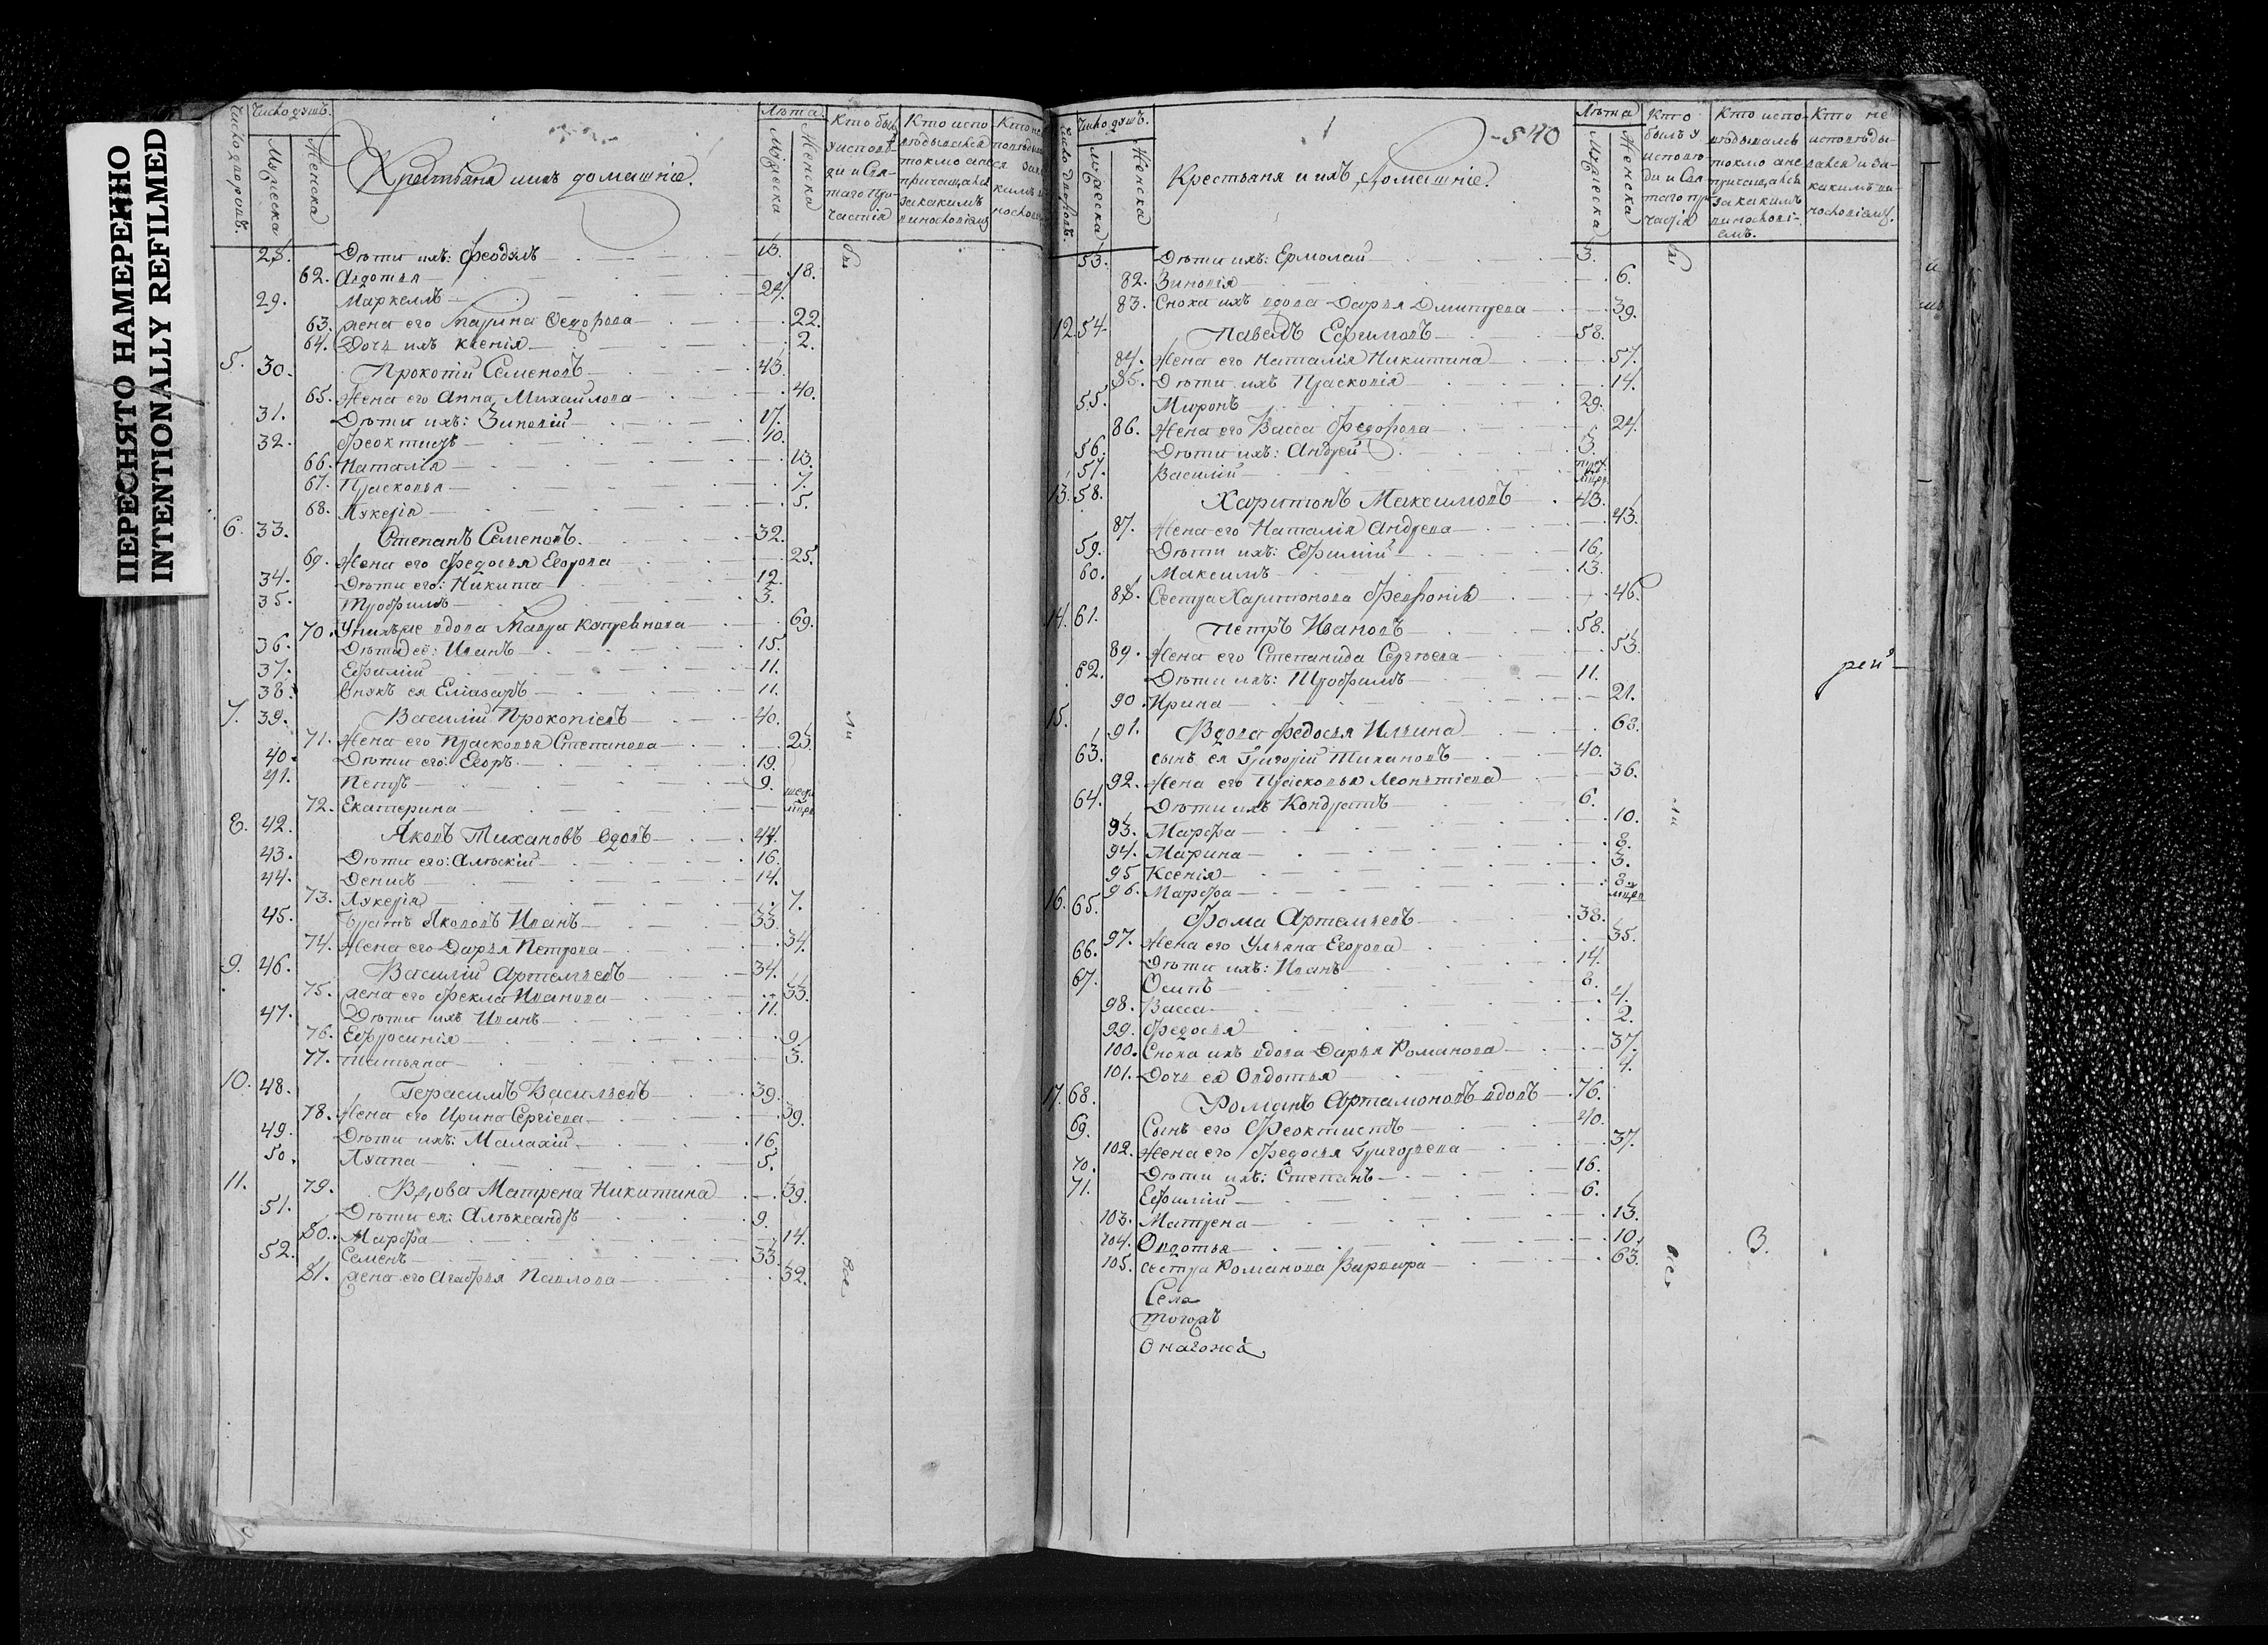 ПЕРЕСНЯТО НАМЕРЕННО
INTENTIONALLY REFILMED
Число дворовъ.
Число душъ.
Мужеска
Женска
Крестьяня и ихъ домашніе.
Лѣта.
Мужеска
Женска
Кто былъ у исповѣди и Святаго Причастія
Кто исповѣдывался токмо а не причащался за какимъ винословіемъ
28. Дѣти ихъ: Феодулъ 13.
62. Авдотья 18.
29. Маркеллъ 24.
63. жена его Марина Федорова 22.
64. Дочь ихъ Ксенія 2.
5. 30. Прокопій Семеновъ 43.
65. Жена его Анна Михайлова 40.
31. Дѣти ихъ: Зиновій 17.
32. Феоктистъ 10.
66. Наталія 13.
67. Прасковья 7.
68. Лукерія 5.
6. 33. Степанъ Семеновъ. 32.
69. Жена его Федосья Егорова 25.
34. Дѣти его: Никита 12.
35. Трофимъ 3.
70. У нихъ же вдова Мавра 69.
36. Дѣти ее: Иванъ 15.
37. Ефимій 11.
38. Внукъ ея Елиазаръ 11.
7. 39. Василій Прокопіевъ 40.
71. Жена его Прасковья Степанова 25.
40. Дѣти его: Егоръ 19.
41. Петръ 9.
72. Екатерина
8. 42. Яковъ Тихановъ вдовъ 44.
43. Дѣти его: Алѣксій 16.
44. Денисъ 14.
73. Лукерія 7.
45. Братъ Якововъ Иванъ 33.
74. Жена его Дарья Петрова 34.
9. 46. Василій Артемьевъ 34.
75. жена его Фекла Иванова 33.
47. Дѣти ихъ Иванъ 11.
76. Ефросинія 9.
77. Татьяна 3.
10. 48. Герасимъ Васильевъ 39.
78. Жена его Ирина Сергіева 39.
49. Дѣти ихъ: Малахій 16.
50. Луппа 5.
11. 79. Вдова Матрена Никитина 39.
51. Дѣти ея: Алѣксандръ 9.
80. Марфа 14.
52. Семенъ 33.
81. жена его Агафья Павлова 32.
бы
ли
все
540
Число дворовъ.
Число душъ.
Мужеска
Женска
Крестьяня и ихъ домашніе.
Лѣта
Мужеска
Женска
Кто былъ у исповѣди и Святаго причастія
Кто исповѣдывался токмо а не причащался за какимъ винословіемъ.
Кто не исповѣдывался и за какимъ винословіемъ.
53. Дѣти ихъ: Ермолай 3.
82. Зиновія 6.
83. Сноха ихъ вдова Дарья Дмитрева 39.
12. 54. Павелъ Ефимовъ 58.
84. Жена его Наталія Никитина 57.
85. Дѣти ихъ Прасковія 14.
55. Миронъ 29.
86. Жена его Васса Федорова 24.
56. Дѣти ихъ: Андрей 3.
57. Василій
13. 58. Харитонъ Максимовъ 43.
87. Жена его Наталія Андрева 43.
59. Дѣти ихъ: Ефимій 16.
60. Максимъ 13.
88. Сестра Харитонова Феврония 46.
14. 61. Петръ Ивановъ 58.
89. Жена его Степанида Сергѣева 53.
62. Дѣти ихъ: Трофимъ 11.
90. Ирина 21.
15. 91. Вдова Федосья Ильина 68.
63. сынъ ея Григорій Тихановъ 40.
92. Жена его Прасковья Леонтіева 36.
64. Дѣти ихъ Кондратъ 6.
93. Марфа 10.
94. Марина 8.
95 Ксенія 3.
96. Марфа
16. 65. Фома Артемьевъ 38.
97. Жена его Ульяна Егорова 35.
66. Дѣти ихъ: Иванъ 14.
67. Осипъ 8.
98. Васса 4.
99. Федосья 2.
100. Сноха ихъ вдова Дарья Романова 37.
101. Дочь ея Овдотья 4.
17. 68. Романъ Артамоновъ вдовъ 76.
69. Сынъ его Феоктистъ 40.
102. Жена его Федосья Григорьева 37.
70. Дѣти ихъ: Степанъ 16.
71. Ефимій 6.
103. Матрена 13.
104. Овдотья 10.
105. сестра Романова Варвара 63.
бы
ли
все
3.
Села
рей